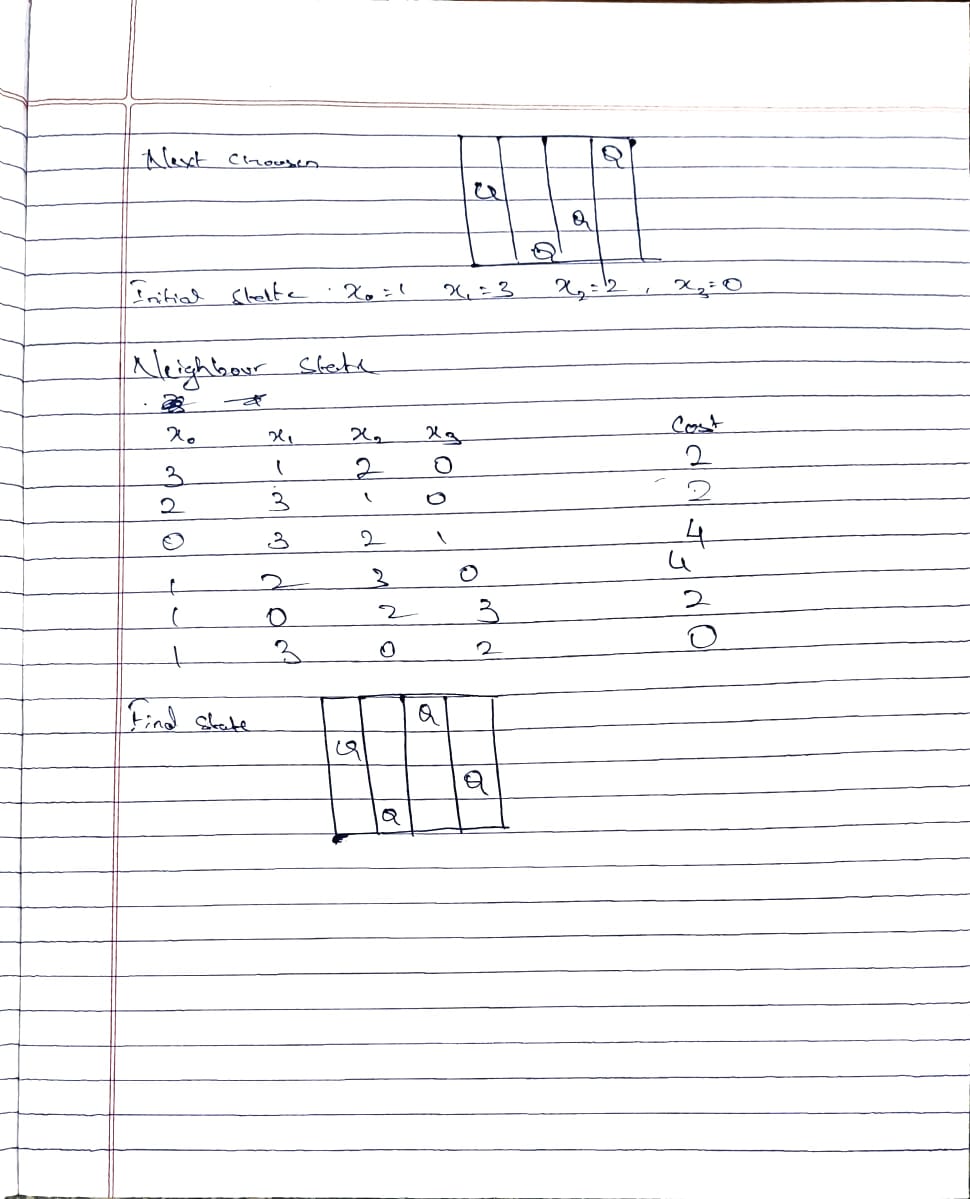 Next Choosen
Q
Q
Q
Q
Initial State x₀=1 x₁=3 x₂=2, x₃=0
Neighbour State
x₀ x₁ x₂ x₃ Cost
3 1 2 0 2
2 3 1 0 2
0 3 2 1 4
1 2 3 0 4
1 0 2 3 2
1 3 0 2 0
Final State
Q
Q
Q
Q